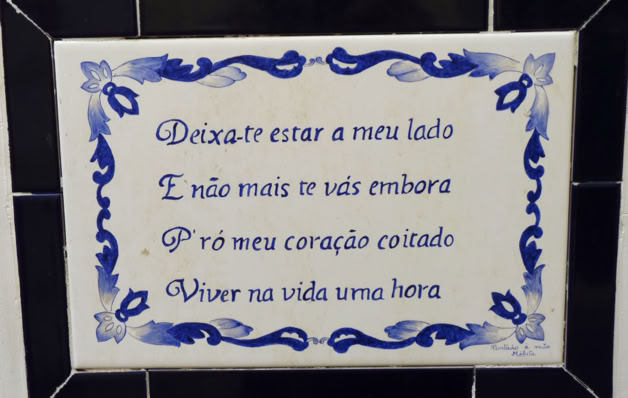 Deixa-te estar a meu lado
E não mais te vás embora
P'ró meu coração coitado
Viver na vida uma hora